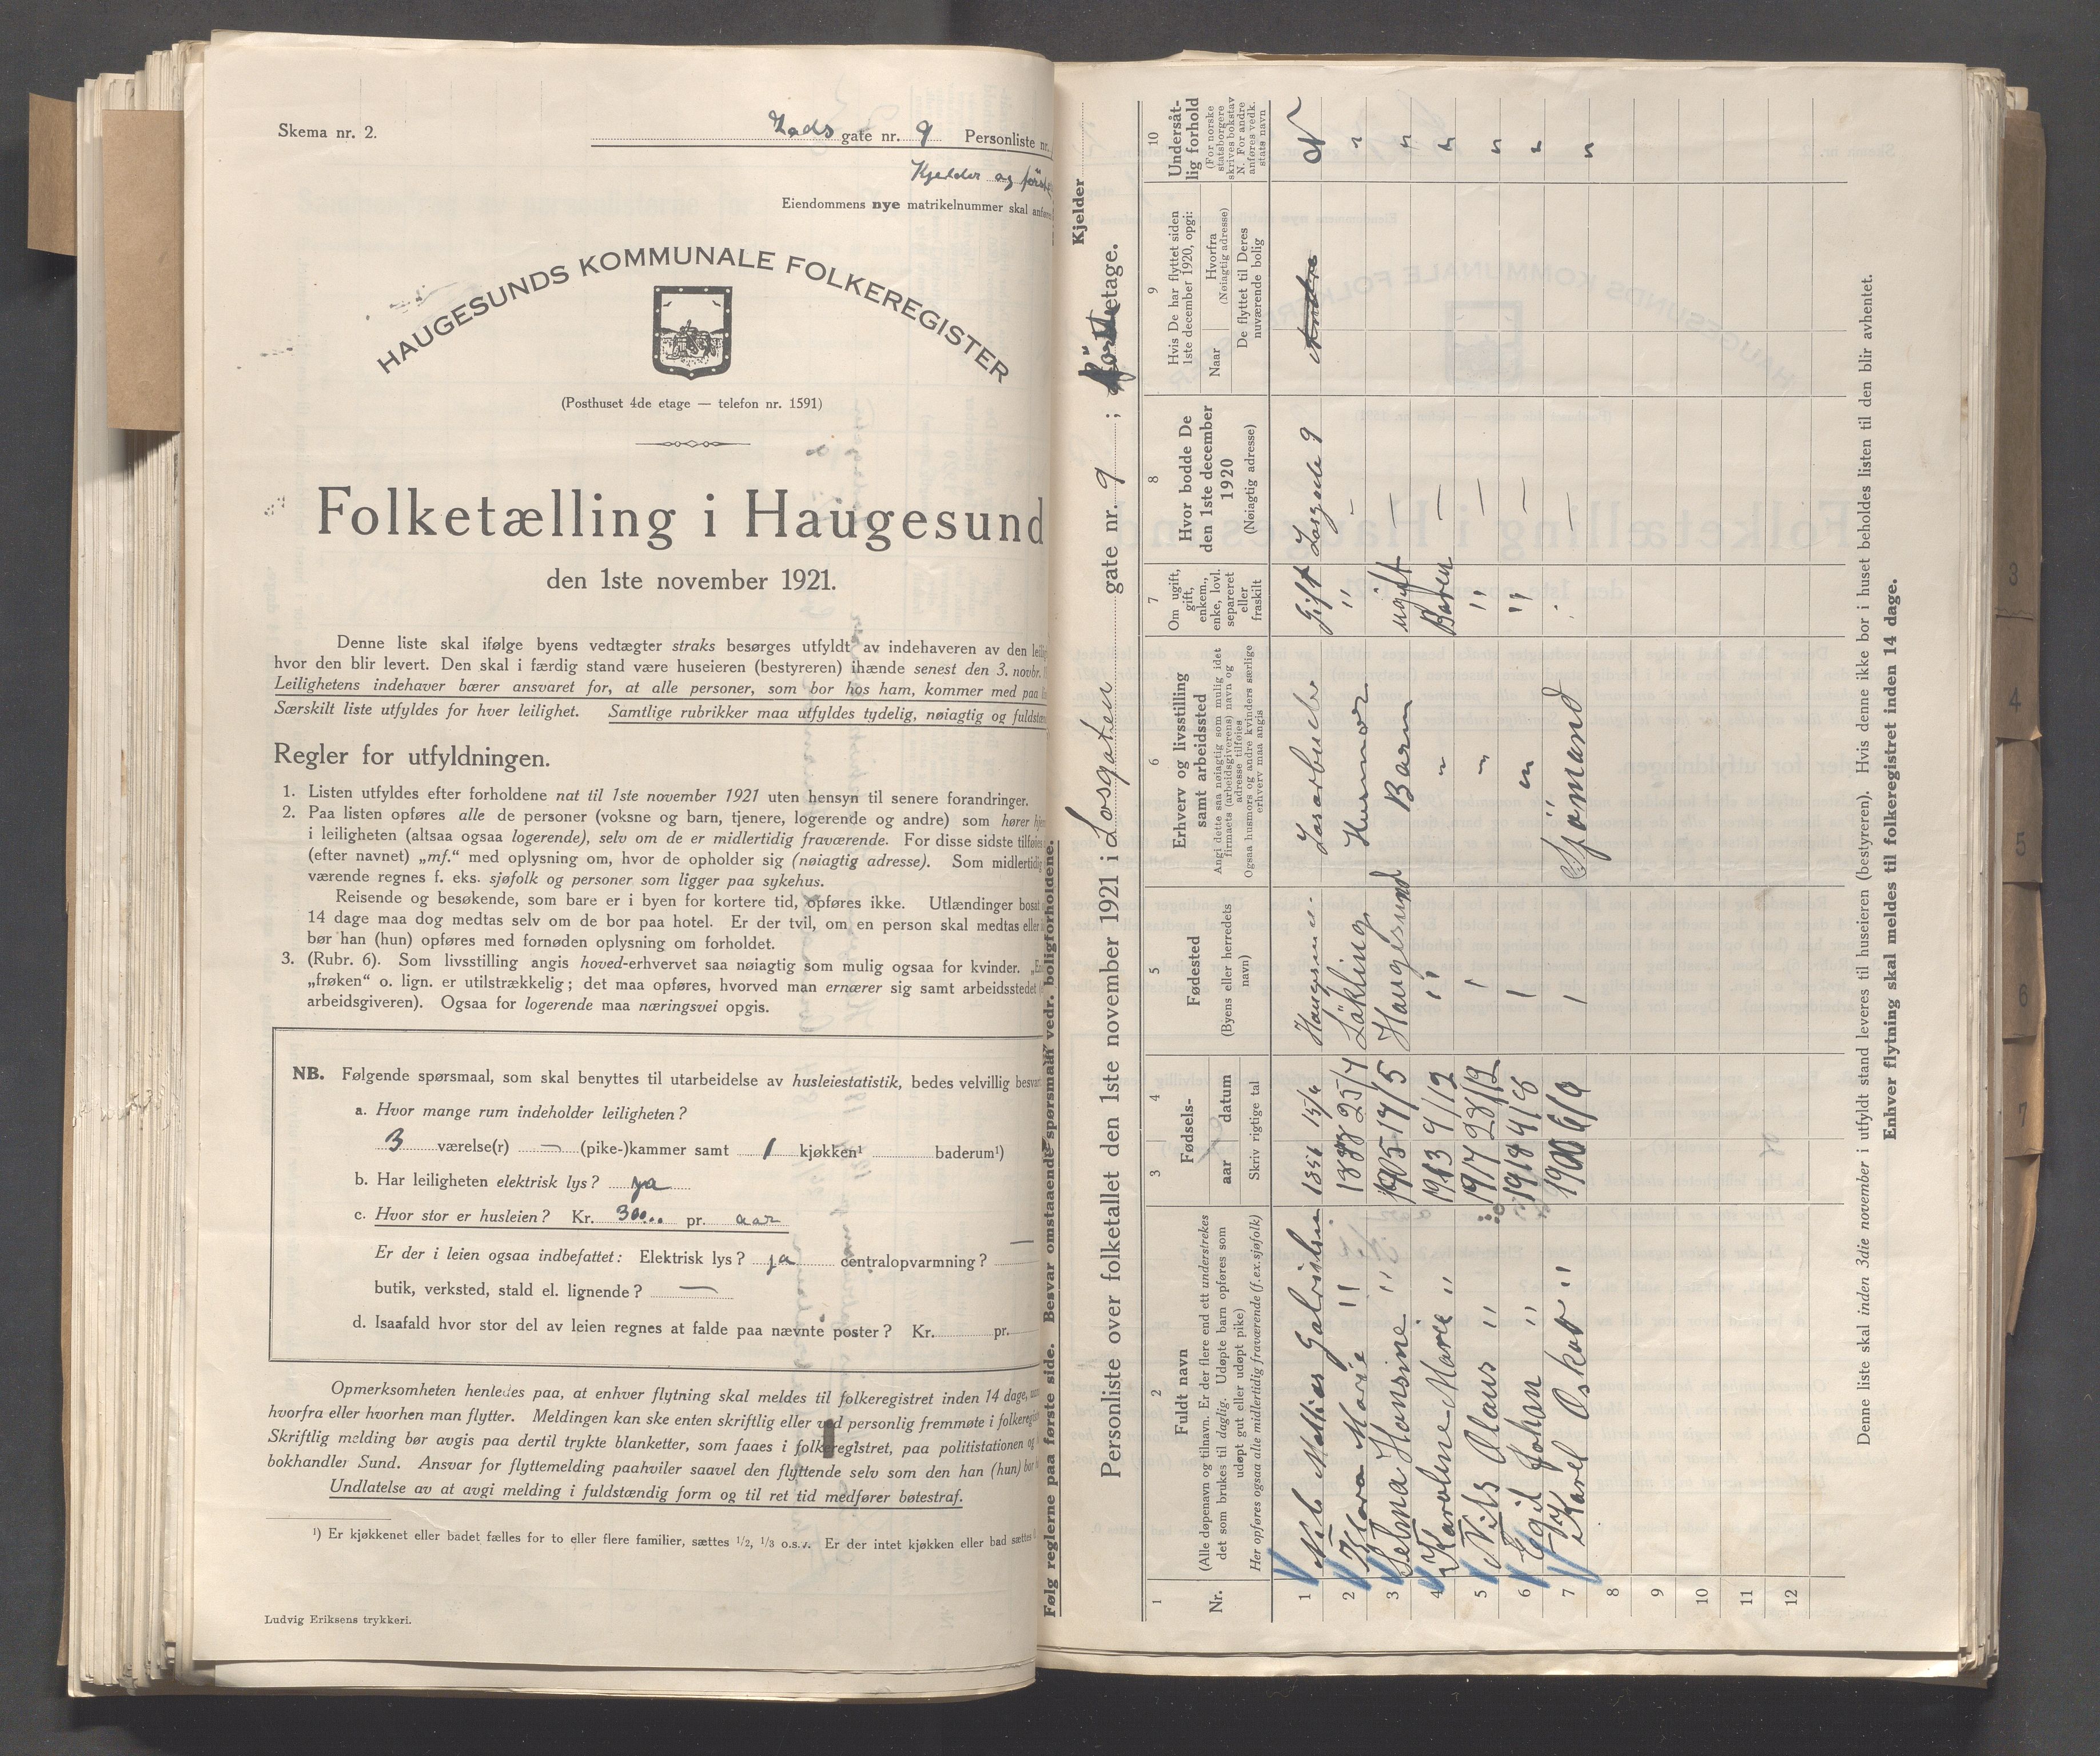 Skema nr. 2.
Lods gate nr. 9 Personliste nr.
Kjelder og förste
Eiendommens nye matrikelnummer skal
HAUGESUNDS KOMMUNALE FOLKEREGISTER
(Posthuset 4de etage — telefon nr. 1591)
Folketælling i Haugesund
den 1ste november 1921.
Denne liste skal ifølge byens vedtægter straks besørges utfyldt av indehaveren av den
hvor den blir levert. Den skal i færdig stand være huseieren (bestyreren) ihænde senest den 3. novbr.
Leilighetens indehaver bærer ansvaret for, at alle personer, som bor hos ham, kommer med paa
Særskilt liste utfyldes for hver leilighet. Samtlige rubrikker maa utfyldes tydelig, nøiagtig og
Regler for utfyldningen.
1. Listen utfyldes efter forholdene nat til 1ste november 1921 uten hensyn til senere forandringer.
2. Paa listen opføres alle de personer (voksne og barn, tjenere, logerende og andre) som hører
i leiligheten (altsaa ogsaa logerende), selv om de er midlertidig fraværende. For disse sidste
(efter navnet) „mf.“ med oplysning om, hvor de opholder sig (nøiagtig adresse). Som
værende regnes f. eks. sjøfolk og personer som ligger paa sykehus.
Reisende og besøkende, som bare er i byen for kortere tid, opføres ikke. Utlændinger
14 dage maa dog medtas selv om de bor paa hotel. Er der tvil, om en person skal medtas eller
bør han (hun) opføres med fornøden oplysning om forholdet.
3. (Rubr. 6). Som livsstilling angis hoved-erhvervet saa nøiagtig som mulig ogsaa for kvinder.
„frøken“ o. lign. er utilstrækkelig; det maa opføres, hvorved man ernærer sig samt arbeidsstedet
arbeidsgiveren). Ogsaa for logerende maa næringsvei opgis.
NB. Følgende spørsmaal, som skal benyttes til utarbeidelse av husleiestatistik, bedes velvillig
a. Hvor mange rum indeholder leiligheten?
3 værelse(r) — (pike-)kammer samt 1 kjøkken¹ baderum¹)
b. Har leiligheten elektrisk lys? ja
c. Hvor stor er husleien? Kr. 300.. pr. aar
Er der i leien ogsaa indbefattet: Elektrisk lys? ja centralopvarmning? —
butik, verksted, stald el. lignende? —
d. Isaafald hvor stor del av leien regnes at falde paa nævnte poster? Kr. pr.
Opmerksomheten henledes paa, at enhver flytning skal meldes til folkeregistret inden 14 dage,
hvorfra eller hvorhen man flytter. Meldingen kan ske enten skriftlig eller ved personlig fremmøte i
Skriftlig melding bør avgis paa dertil trykte blanketter, som faaes i folkeregistret, paa politistationen og
bokhandler Sund. Ansvar for flyttemelding paahviler saavel den flyttende selv som den han (hun) bor
Undlatelse av at avgi melding i fuldstændig form og til ret tid medfører bøtestraf.
¹) Er kjøkkenet eller badet fælles for to eller flere familier, sættes 1/2, 1/3 o.s.v. Er der intet kjøkken eller bad sættes
Ludvig Eriksens trykkeri.
Følg reglerne paa første side. Besvar omstaaende spørsmaal vedr. boligforholdene.
Kjelder
Personliste over folketallet den 1ste november 1921 i Losgaten gate nr. 9; förste etage.
1 2 3 4 5 6 7 8 9 10
Nr.
Fuldt navn
(Alle døpenavn og tilnavn. Er der flere end ett understrekes
det som brukes til daglig. Udøpte barn opføres som
udøpt gut eller udøpt pike)
Her opføres ogsaa alle midlertidig fraværende (f.ex.sjøfolk)
Fødsels-
aar datum
Skriv rigtige tal
Fødested
(Byens eller herredets
navn)
Erhverv og livsstilling
samt arbeidssted
Angi dette saa nøiagtig som mulig idet
firmaets (arbeidsgiverens) navn og
adresse tilføies
Ogsaa husmors og andre kvinders særlige
erhverv maa angis
Om ugift,
gift,
enkem.,
enke, lovl.
separeret
eller
fraskilt
Hvor bodde De
den 1ste december
1920
(Nøiagtig adresse)
Hvis De har flyttet siden
1ste december 1920, opgi:
Naar
Hvorfra
(Nøiagtig adresse)
De flyttet til Deres
nuværende bolig
Undersåt-
lig forhold
(For norske
statsborgere
skrives bokstav
N. For andre
anføres vedk.
stats navn
1 Nils Mattias Gabrielsen 15/6 Gift Losgate 9 N
2 Klara Marie " 25/7 Husmor " — "
3 Selma Hansine " 1905 14/5 Haugesund Barn ugift — "
4 Karoline Marie " 1913 9/12 " " Barn — "
5 Nils Olaus " 1917 28/12 | " " — "
6 Egil Johan " 1918 4/8 | " " — "
7 Karel Oskar " 1900 6/9 | Sjömand — "
8
9
10
11
12
Denne liste skal inden 3die november i utfyldt stand leveres til huseieren (bestyreren). Hvis denne ikke bor i huset beholdes listen til den blir avhentet.
Enhver flytning skal meldes til folkeregistret inden 14 dage.
3
4
5
6
7